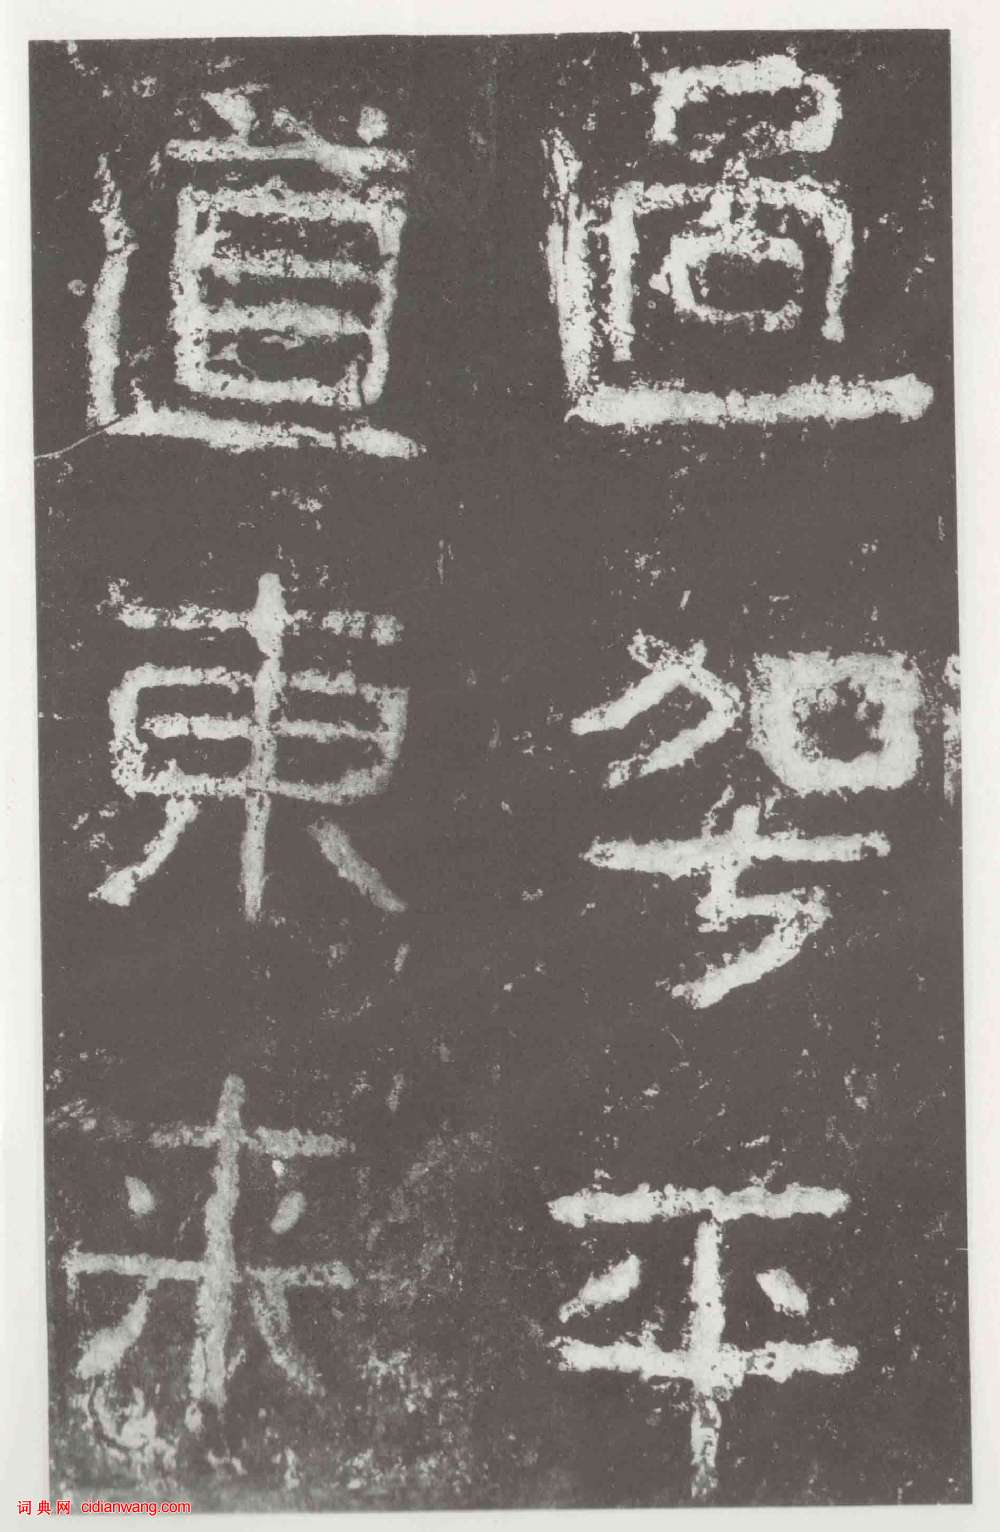 過平
道東來
词典网 cidianwang.com